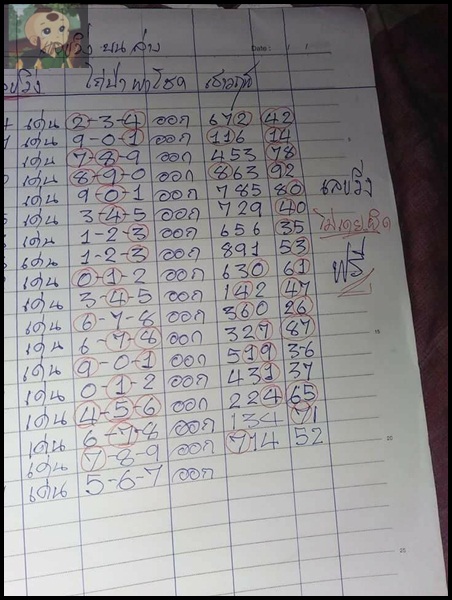 บน ล่าง
Date : / /
เด่น 2-3-4 ออก 672 42
เด่น 9-0-1 ออก 116 14
เด่น 7-8-9 ออก 453 78
เด่น 8-9-0 ออก 863 92
เด่น 9-0-1 ออก 785 80
เด่น 3-4-5 ออก 729 40
เด่น 1-2-3 ออก 656 35
เด่น 1-2-3 ออก 891 53
เด่น 0-1-2 ออก 630 61
เด่น 3-4-5 ออก 142 47
เด่น 6-7-8 ออก 360 26
เด่น 6-7-8 ออก 327 87
เด่น 9-0-1 ออก 519 36
เด่น 0-1-2 ออก 431 37
เด่น 4-5-6 ออก 224 65
เด่น 6-7-8 ออก 134 71
เด่น 7-8-9 ออก 714 52
เด่น 5-6-7 ออก
เลขวิ่ง
ไม่เคยผิด
ฟรี
15
20
25